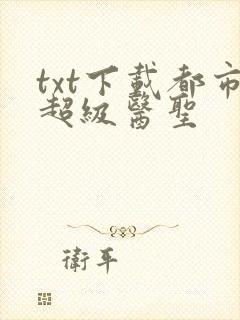 txt下載都市
超級醫聖
衛平